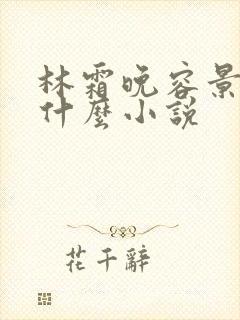 林霜晚容景
什麼小說
花千辭